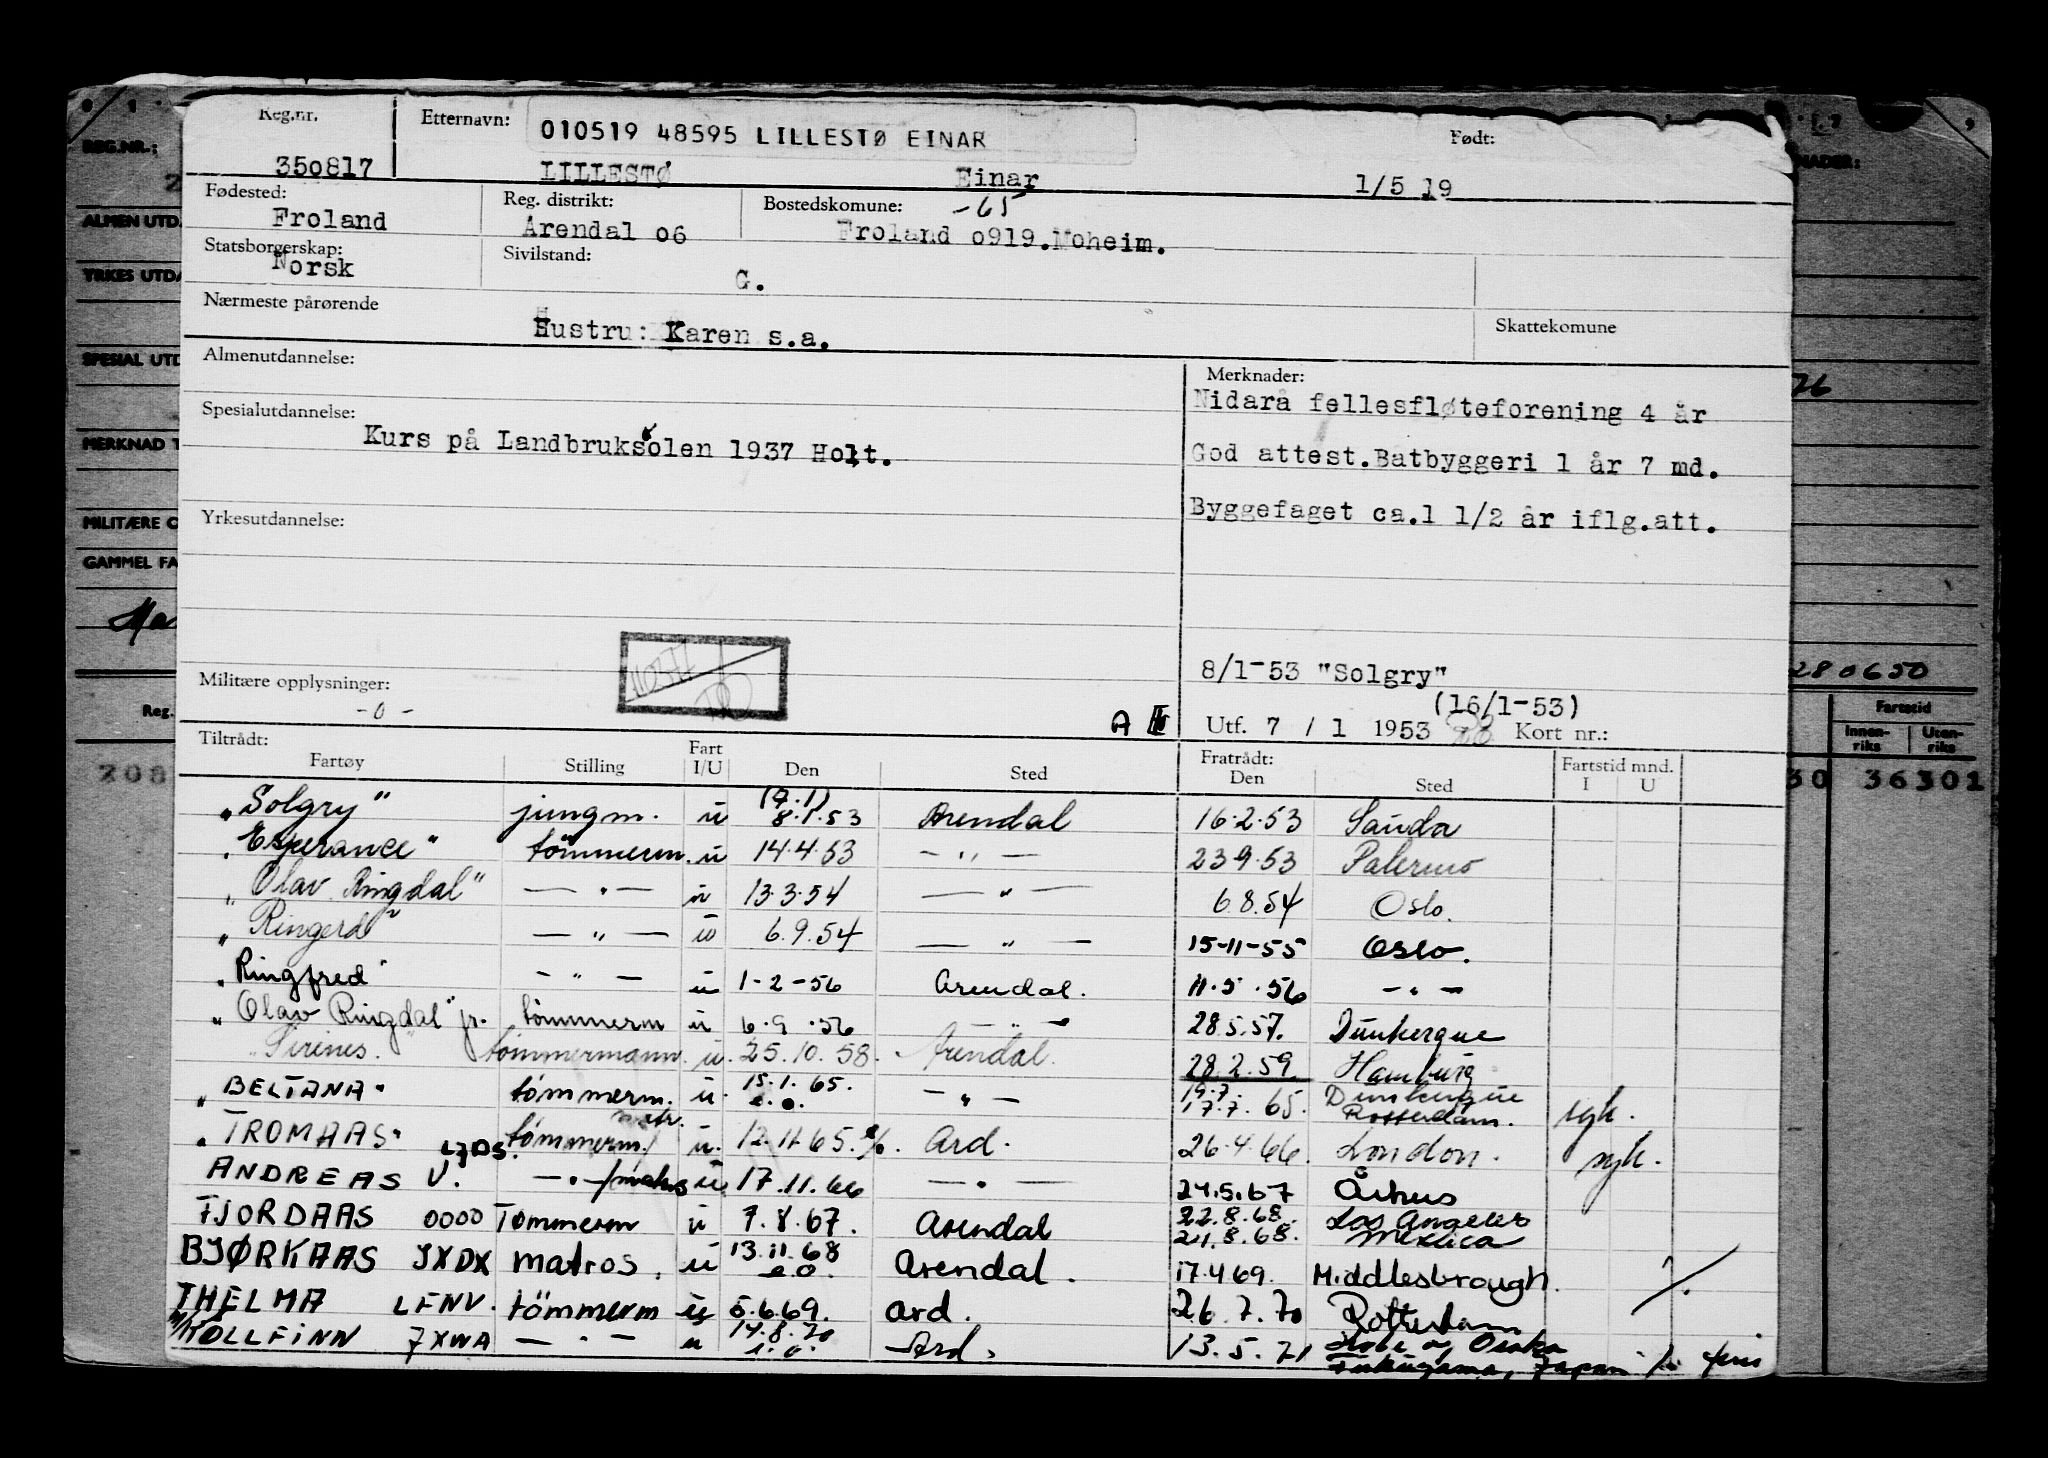 Reg.nr. Etternavn: 010519 48595 LILLESTØ EINAR Født:
350817 LILLESTØ Einar 1/5 19
Fødested: Reg. distrikt: Bostedskomune: -65
Froland Arendal o6 Froland o919.Moheim.
Statsborgerskap: Sivilstand:
Norsk G.
Nærmeste pårørende
Hustru: Karen s.a. Skattekomune
Almenutdannelse: Merknader:
Nidarå fellesfløteforening 4 år
Spesialutdannelse:
Kurs på Landbruksolen 1937 Holt. God attest.Båtbyggeri 1 år 7 md.
Yrkesutdannelse: Byggefaget ca.1 1/2 år iflg.att.
8/1-53 "Solgry"
Militære opplysninger: (16/1-53)
-o- A Utf. 7 / 1 1953 Kort nr.:
Tiltrådt: Fart Fratrådt: Fartstid mnd.
Fartøy Stilling I/U Den Sted Den Sted I U
"Solgry" jungm. u (7.1) 8.1.53 Arendal 16.2.53 Sauda
"Esperance" tömmerm. u 14.4.53 — " — 23 9.53 Palermo
"Olav Ringdal" — " — u 13.3.54 — " — 6.8.54 Oslo.
"Ringerd" — " — u 6.9.54 — " — 15-11-55 Oslo.
"Ringfred" — " — u 1-2-56 Arendal. 11.5.56 — " —
"Olav Ringdal" jr. tömmerm u 6.9.56 — " — 28.5.57. Dunkerque
"Sirenes. tömmermann. u. 25.10.58. Arendal. 28.2.59 Hamburg
"BELTANA" tömmerm. u. 15.1.65. e.o. — " — 19.7. 17.7. 65. Dunkerque Rotterdam. syk.
"TROMAAS" LJDS. tömmerm./matr. u. 12.11.65. Ard. 26.4.66. London. syk.
ANDREAS V. — " —/matros u. 17.11.66 — " — 24.5.67 Århus
FJORDAAS 0000 Tømmerm u 7.8.67. Arendal 22.8.68. 21.8.68. Los Angeles Mexico
BJØRKAAS JXDX matros. u 13.11.68 e.o. Arendal. 17.4 69. Middlesbrough.
THELMA LFNV. tömmerm u 5.6.69. Ard. 26.7.70 Rotterdam
KOLLFINN JXWA — " — u 14.8.70 e.o. Ard. 13.5.71 Kobe og Osaka
Fukuyama, Japan
REG.NR.:
ALMEN UTD.
YRKES UTDA
SPESIAL UTD
MERKNAD T
MILITÆRE O
GAMMEL FA
Reg.
208
NADER:
76
280650
Fartstid
Innen-riks Uten-riks
30 36301